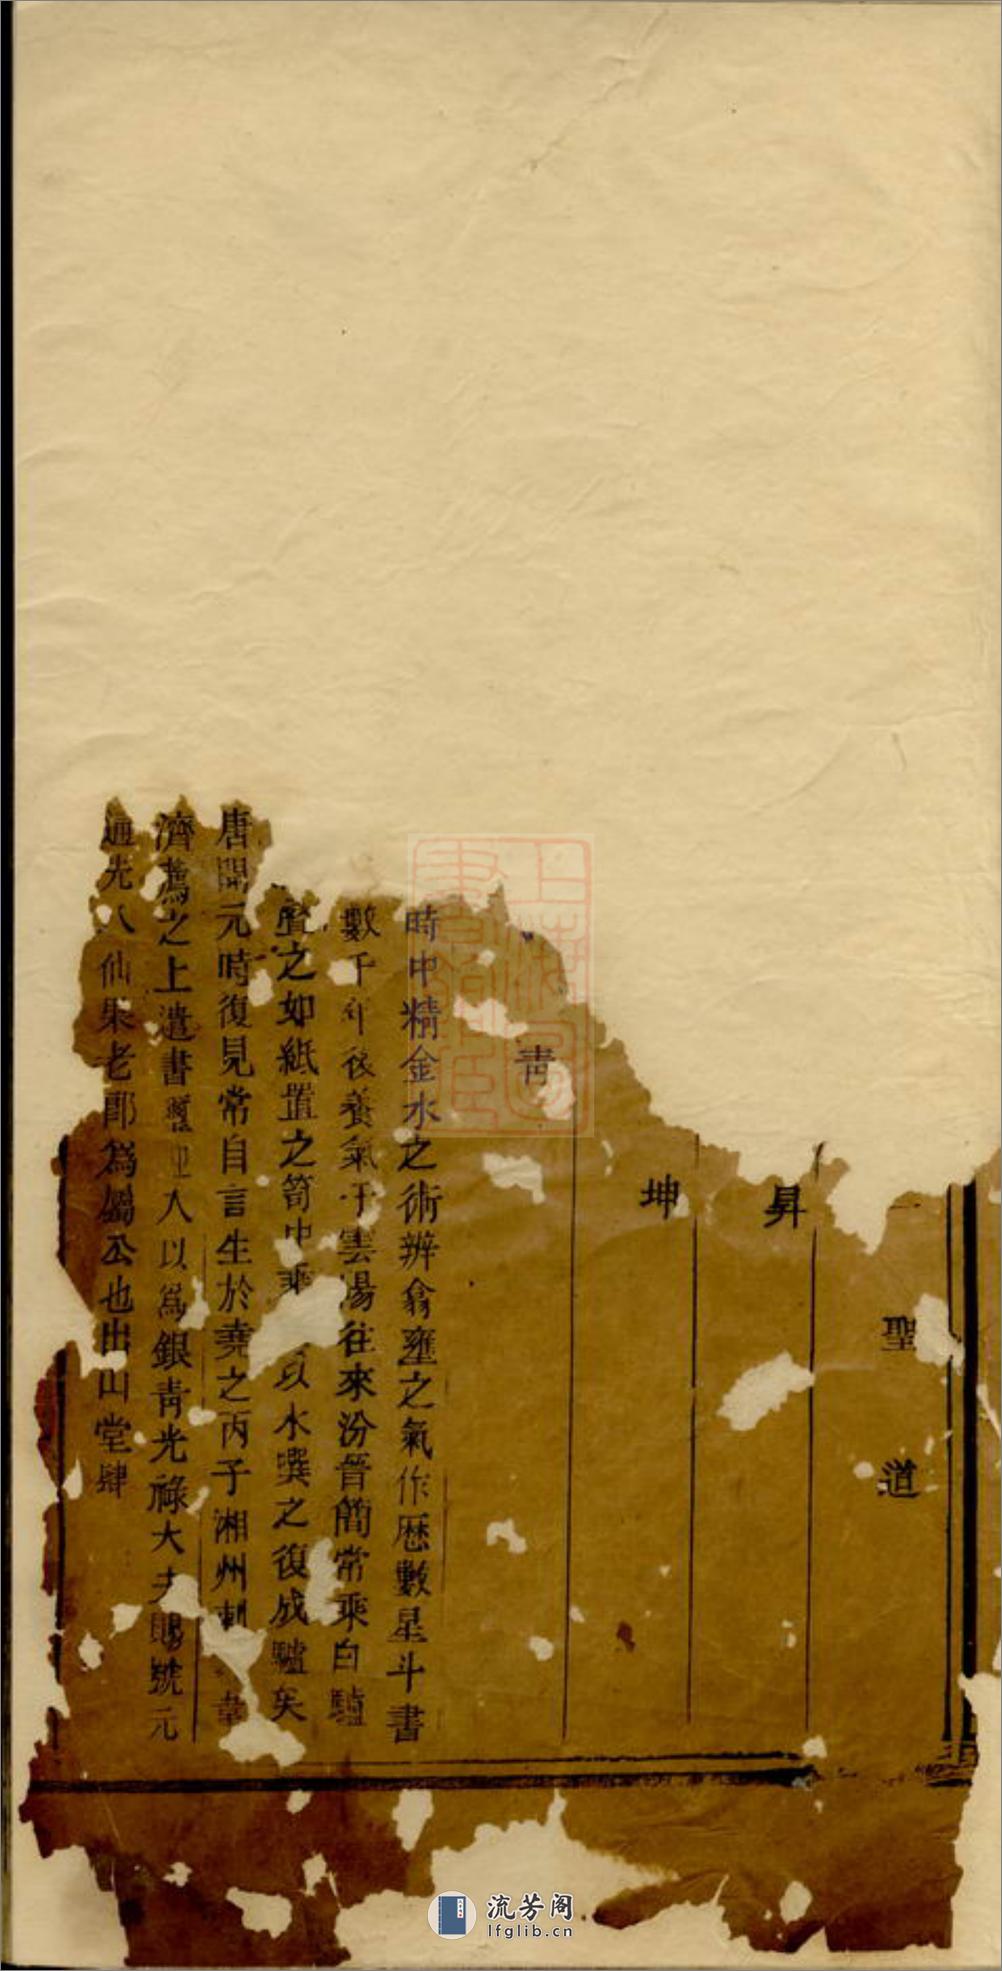 聖道
昇
坤
青
時中精金水之術辨禽壅之氣作歷數星斗書
數千年後養氣于雲陽往來汾晉簡常乘白驢
疊之如紙置之笥中乘以水噀之復成驢矣
唐開元時復見常自言生於堯之丙子湘州刺韋
濟薦之上遣書人以為銀青光祿大夫賜號元
通先八仙果老郎為屬公也出山堂肆
上海圖書館藏
流芳阁
lfglib.cn